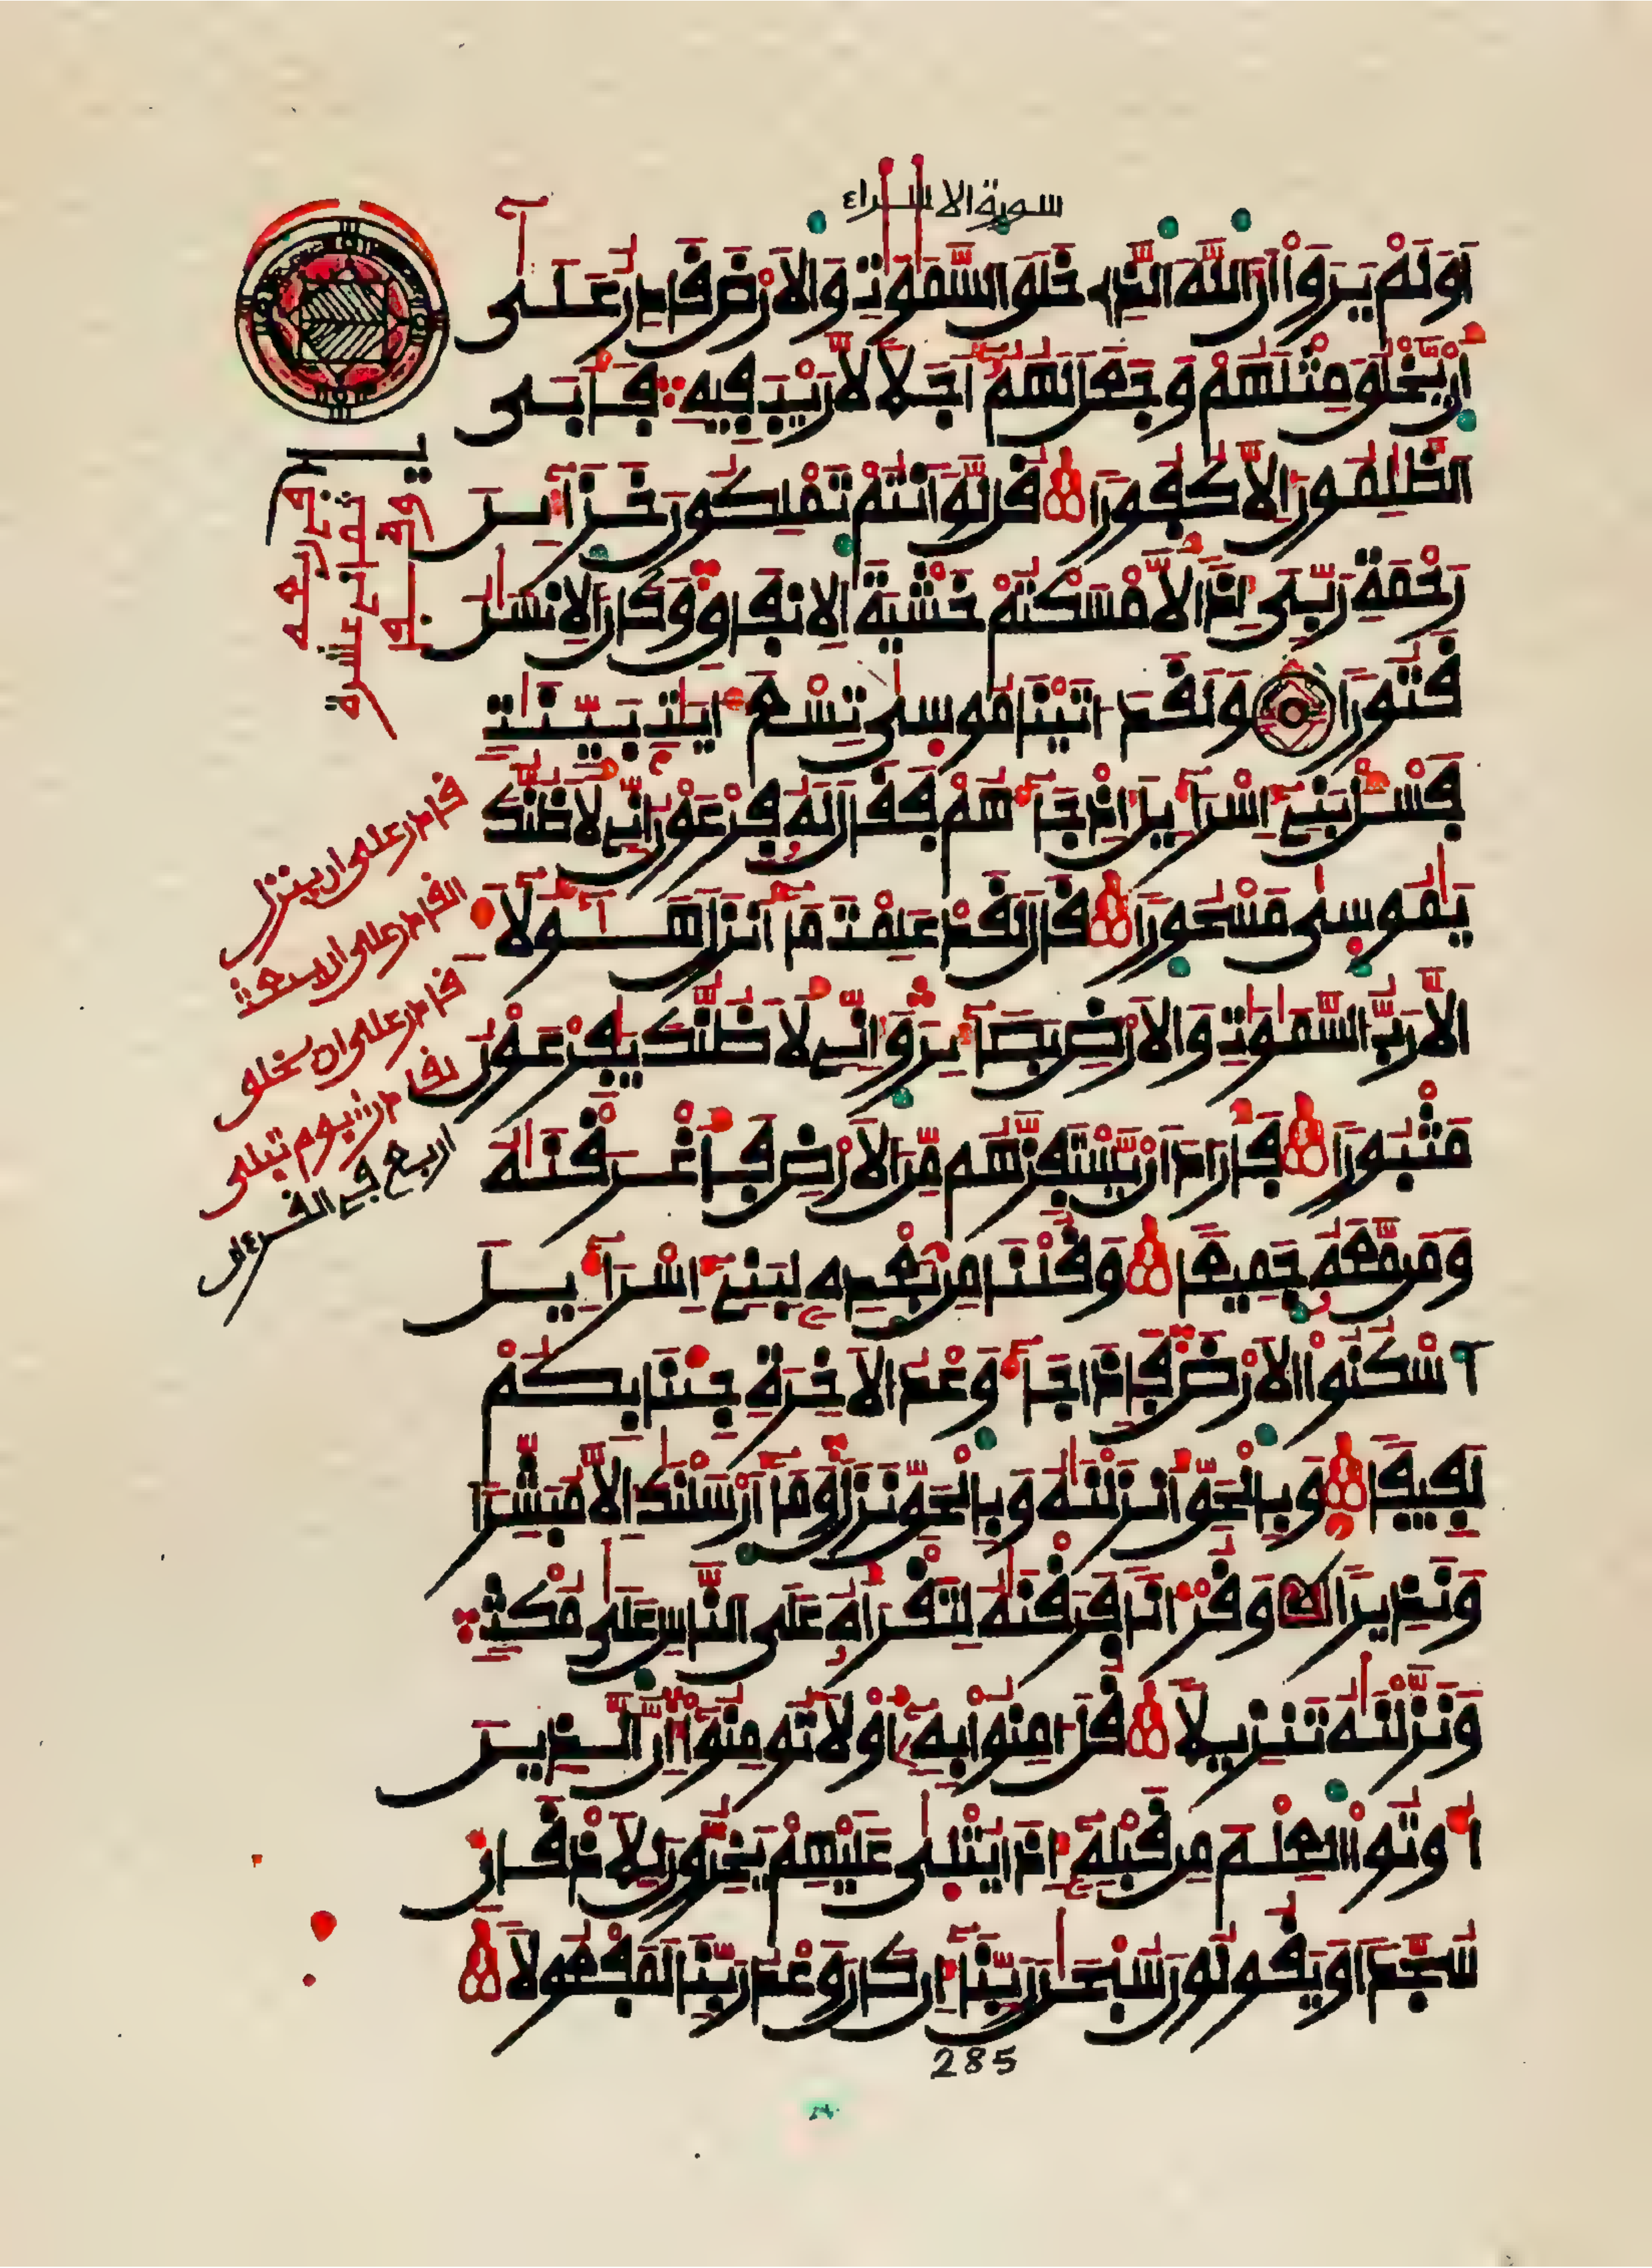 سورة الاسراء
اَوَلَمْ يَرَوَاْ اَنَّ اَللَّهَ اَلذِے خَلَقَ اَلسَّمَٰوَٰتِ وَالَارْضَ قَادِرٌ عَلَىٰٓ
أَنْ يَّخْلُقَ مِثْلَهُمْ وَجَعَلَ لَهُمُۥٓ أَجَلاٗ لَّا رَيْبَ فِيهِ فَأَبَى
اَلظَّٰلِمُونَ إِلَّا كُفُوراٗ قُل لَّوَ اَنتُمْ تَمْلِكُونَ خَزَآئِنَ
رَحْمَةِ رَبِّىَ إِذاٗ لَّأَمْسَكْتُمْ خَشْيَةَ اَلِانفَاقِ وَكَانَ اَلِانسَٰنُ
قَتُوراٗ وَلَقَدَ اٰتَيْنَا مُوسَىٰ تِسْعَ ءَايَٰتٍ بَيِّنَٰتٍ
فَسْـَٔلْ بَنِےٓ إِسْرَآءِيلَ إِذْ جَآءَهُمْ فَقَالَ لَهُۥ فِرْعَوْنُ إِنِّے لَأَظُنُّكَ
يَٰمُوسَىٰ مَسْحُوراٗ قَالَ لَقَدْ عَلِمْتَ مَآ أَنزَلَ هَٰٓؤُلَآءِ
الَّا رَبُّ اُلسَّمَٰوَٰتِ وَالَارْضِ بَصَآئِرَ وَإِنِّے لَأَظُنُّكَ يَٰفِرْعَوْنُ
مَثْبُوراٗ فَأَرَادَ أَنْ يَّسْتَفِزَّهُم مِّنَ اَلَارْضِ فَأَغْرَقْنَٰهُ
وَمَن مَّعَهُۥ جَمِيعاٗ وَقُلْنَا مِنۢ بَعْدِهِۦ لِبَنِےٓ إِسْرَآءِيلَ
اَسْكُنُواْ اُلَارْضَ فَإِذَا جَآءَ وَعْدُ اُلَاخِرَةِ جِئْنَا بِكُمْ
لَفِيفاٗ وَبِالْحَقِّ أَنزَلْنَٰهُ وَبِالْحَقِّ نَزَلَ وَمَآ أَرْسَلْنَٰكَ إِلَّا مُبَشِّراٗ
وَنَذِيراٗ وَقُرْءَاناٗ فَرَقْنَٰهُ لِتَقْرَأَهُۥ عَلَى اَلنَّاسِ عَلَىٰ مُكْثٍ
وَنَزَّلْنَٰهُ تَنزِيلاٗ قُلَ اٰمِنُواْ بِهِۦٓ أَوْ لَا تُومِنُوٓاْ إِنَّ اَلذِينَ
أُوتُواْ اُلْعِلْمَ مِن قَبْلِهِۦٓ إِذَا يُتْلَىٰ عَلَيْهِمْ يَخِرُّونَ لِلَاذْقَانِ
سُجَّداٗ وَيَقُولُونَ سُبْحَٰنَ رَبِّنَآ إِن كَانَ وَعْدُ رَبِّنَا لَمَفْعُولاٗ
قادر على ان ينزل
القادر على ان يبعث
قادر على ان يخلق
لقادر يوم تبلى
اربع في القرءان
285